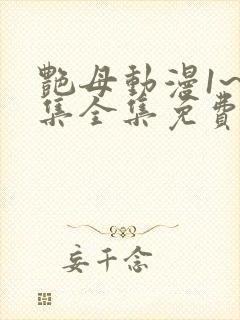 艷母動漫1~
集全集免費
妄千念